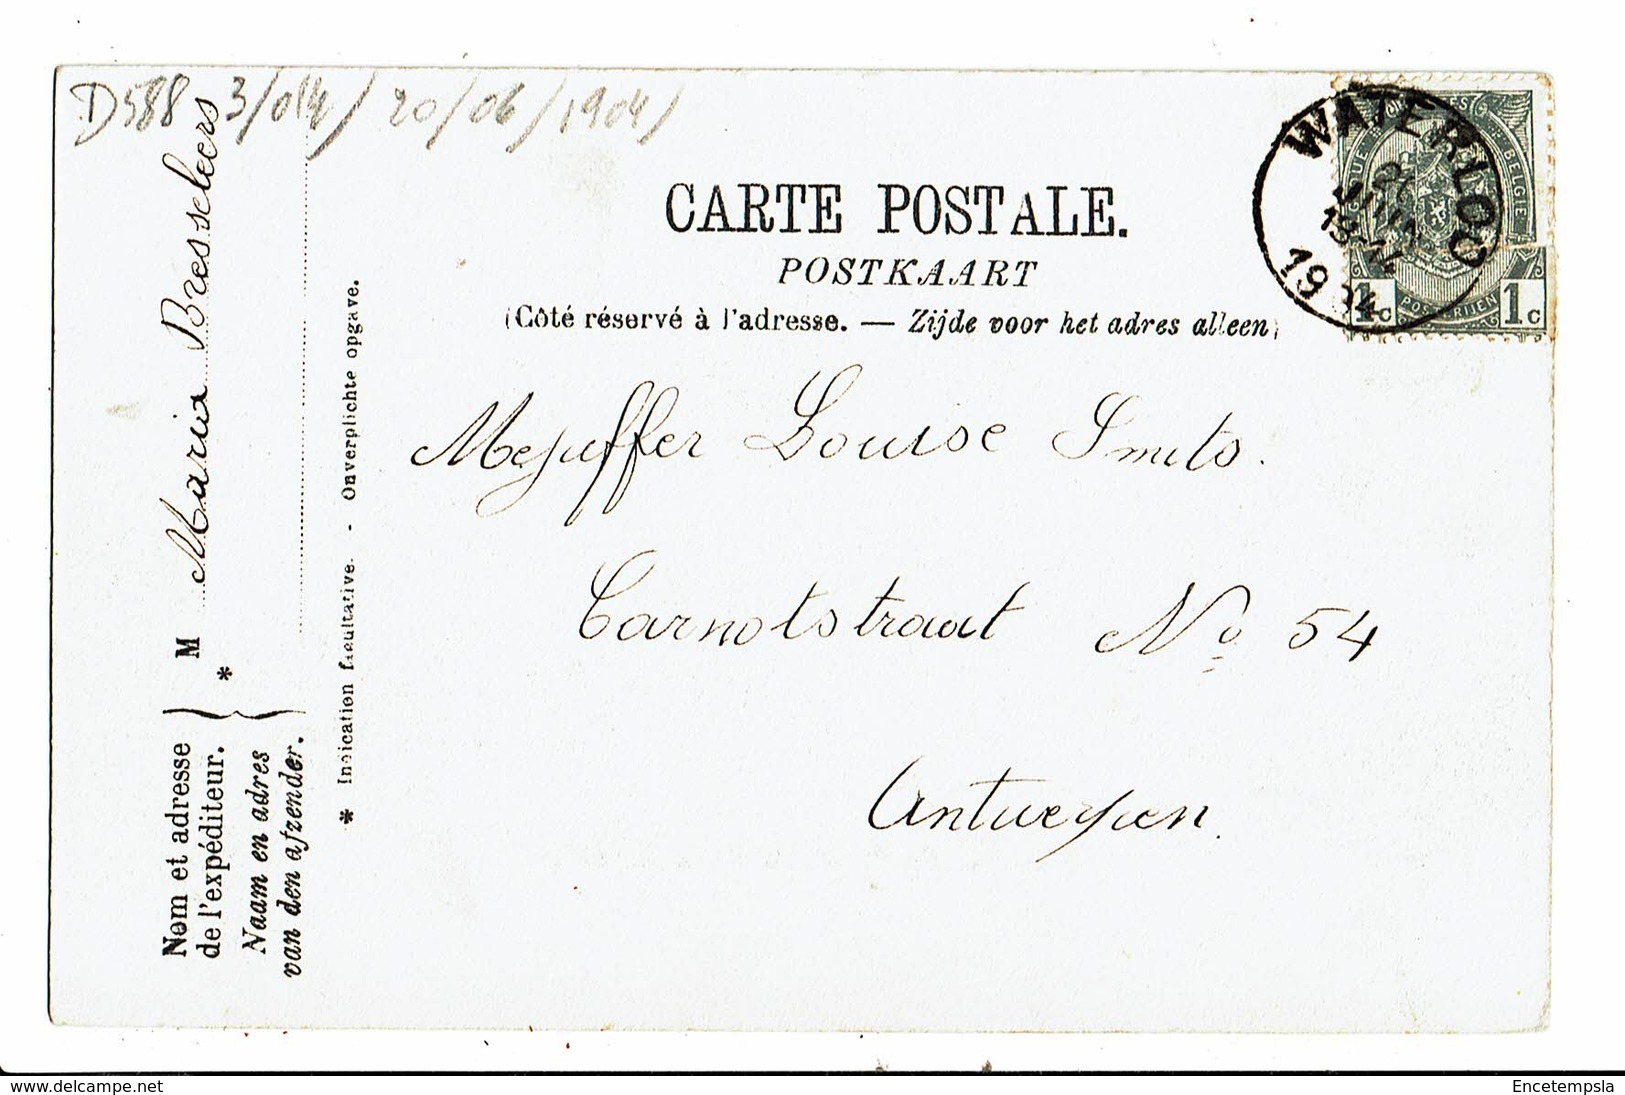 D588 3/014/ 20/06/1904/
CARTE POSTALE.
POSTKAART
(Côté réservé à l'adresse. — Zijde voor het adres alleen)
WATERLOO
1904
BELGIE
1c 1c
Mejuffer Louise Smits.
Carnotstraat No 54
Antwerpen.
Nom et adresse
de l'expéditeur.
Naam en adres
van den afzender.
M Maria Bresseleers
*
* Indication facultative. - Onverplichte opgave.
delcampe.net
Encetempsla